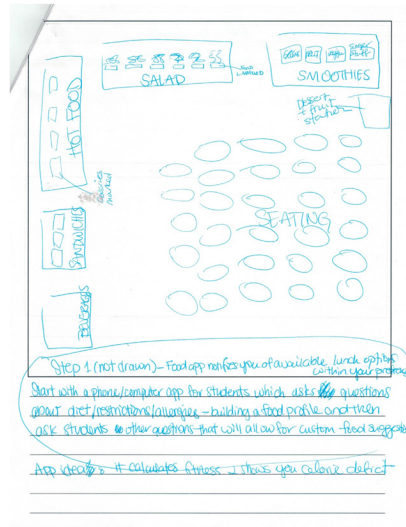 SALAD
food
LABELED
greens
fruit
veggies
SMOOTHIES
Dessert
+ fruit
station
HOT FOOD
calories
marked
SANDWICHES
BEVERAGES
SEATING
Step 1 (not drawn) - Food app notifies you of available lunch options
within your
Start with a phone/computer app for students which asks questions
about diet/restrictions/allergies - building a food profile and then
ask students other questions that will allow for custom food
App ideas: it calculates fitness + shows you calorie deficit